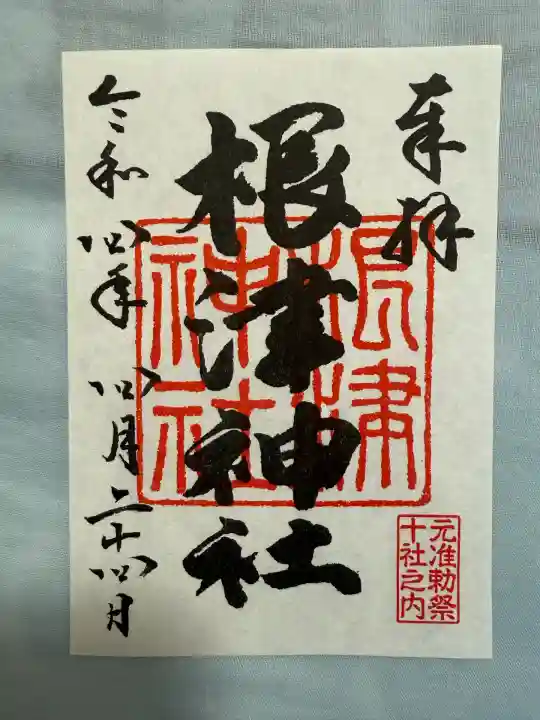 奉拝
根津神社
根津神社
元准勅祭
十社之内
令和四年四月二十四日